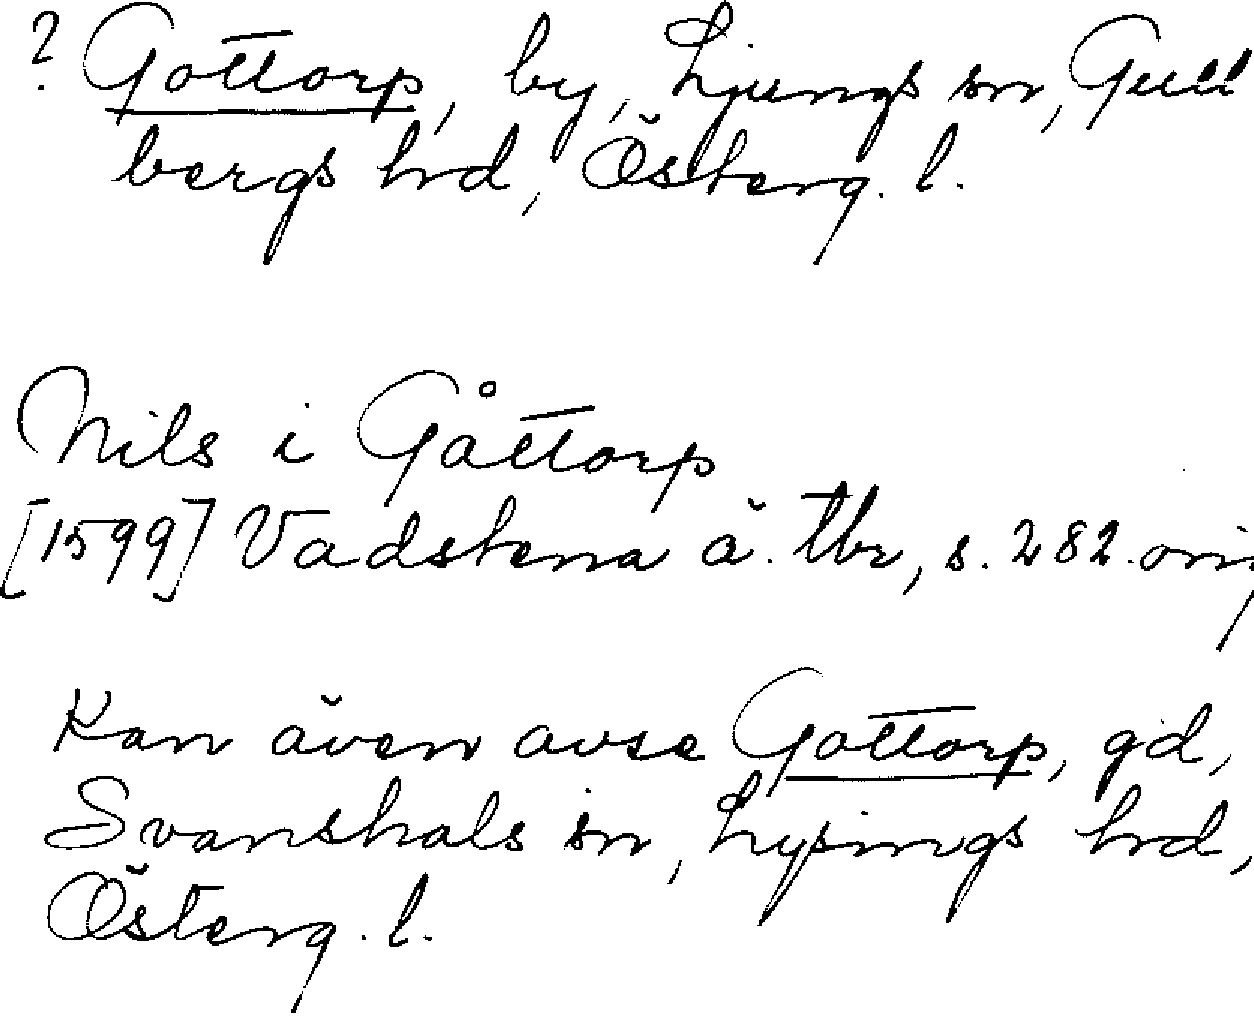 ? Gottorp, by, Ljungs sn, Gull
bergs hrd, Österg. l.
Nils i Gåttorp
[1599] Vadstena ä. tbr, s. 282. orig
Kan även avse Gottorp, gd,
Svanshals sn, Lysings hrd,
Österg. l.